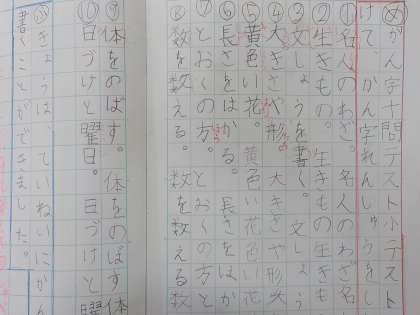 め がん字十問テスト小テスト
けて かん字れんしゅうをし
① 名人のわざ。名人のわざ名
② 生きもの。生きもの生き
③ 文しょうを書く。文しょう
④ 大きさや形。大きさや形大
⑤ 黄色い花。黄色い花黄色
⑥ 長さをはかる。長さをはか
⑦ とおくの方。とおくの方と
⑧ 数を数える。数を数える数
⑨ 体をのばす。体をのばす体
⑩ 日づけと曜日。日づけと曜
ぶきょうは、ていねいにかん
書くことができました。